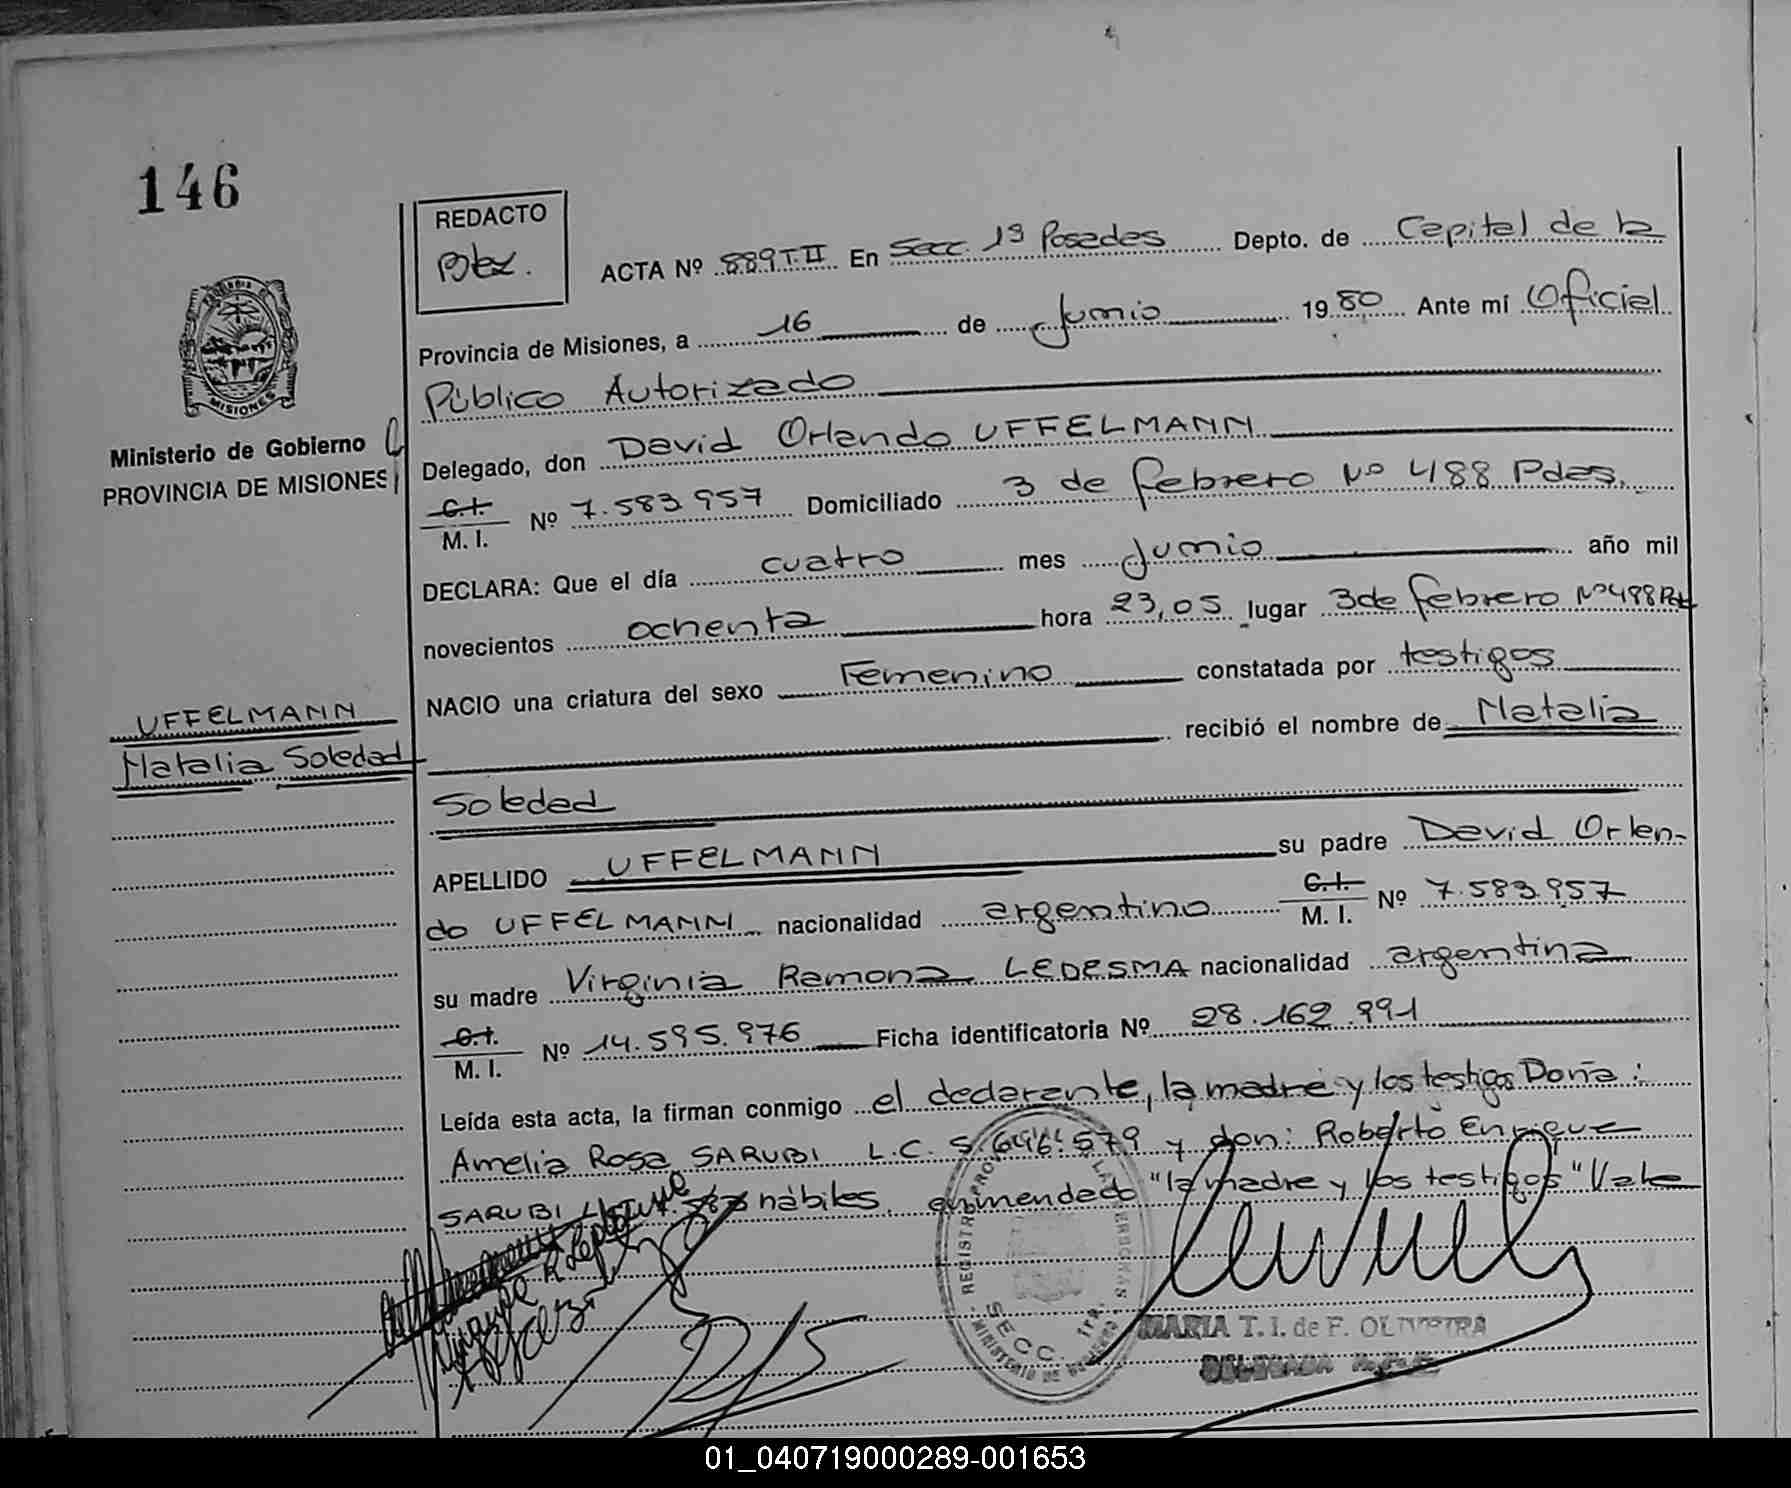 146
REDACTO
ACTA Nº 889 T. II En Secc. 1ª Posadas Depto. de Capital de la
Provincia de Misiones, a 16 de Junio 1980 Ante mí Oficial
Público Autorizado
MISIONES
Ministerio de Gobierno
PROVINCIA DE MISIONES
Delegado, don David Orlando UFFELMANN
C.I.
M. I. Nº 7.583.957 Domiciliado 3 de febrero Nº 488 Pdas.
DECLARA: Que el día cuatro mes Junio año mil
novecientos ochenta hora 23,05 lugar 3 de febrero Nº 498
NACIO una criatura del sexo Femenino constatada por testigos
UFFELMANN
Natalia Soledad
recibió el nombre de Natalia
Soledad
APELLIDO UFFELMANN su padre David Orlan-
do UFFELMANN nacionalidad argentino C.I. M. I. Nº 7.583.957
su madre Virginia Ramona LEDESMA nacionalidad argentina
C.I.
M. I. Nº 14.595.976 Ficha identificatoria Nº 28.162.991
Leída esta acta, la firman conmigo el declarante, la madre y los testigos Doña:
Amelia Rosa SARUBI L.C. 5.696.579 y don: Roberto Enrique
SARUBI hábiles. enmendado "la madre y los testigos" Vale
REGISTRO PROV. DE LAS PERSONAS
SECC. 1ra.
MINISTERIO DE GOBIERNO
MARIA T. I. de F. OLIVEIRA
DELEGADA
01_040719000289-001653